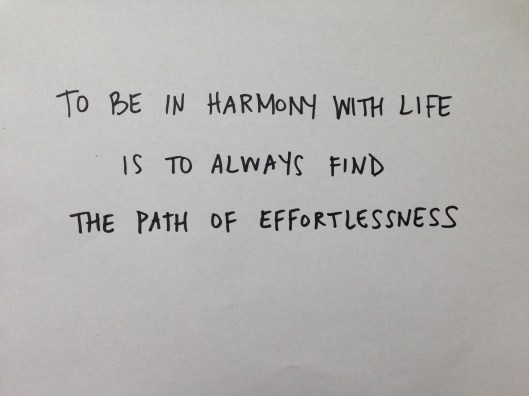 TO BE IN HARMONY WITH LIFE
IS TO ALWAYS FIND
THE PATH OF EFFORTLESSNESS